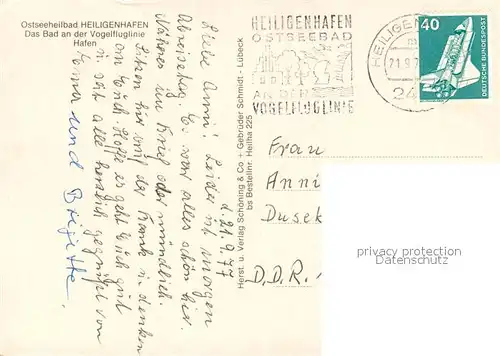 Ostseeheilbad HEILIGENHAFEN
Das Bad an der Vogelfluglinie
Hafen
d. 21.9.77
Liebe Anni! Leider ist morgen
Abreisetag. Es war alles schön hier.
Näheres im Brief oder mündlich.
Sitzen hier mit der und denken
an Euch. Hoffe es geht Euch gut
u. seid alle herzlich gegrüßt von
Erna und Brigitte.
Herst. u. Verlag Schöning & Co + Gebrüder Schmidt - Lübeck
bs Bestellnr. Heilha 225
HEILIGENHAFEN
OSTSEEBAD
AN DER
VOGELFLUGLINIE
HEILIGEN
m
21.9.7
24
40
DEUTSCHE BUNDESPOST
Frau
Anni
Dusek
D.D.R.
privacy protection
Datenschutz